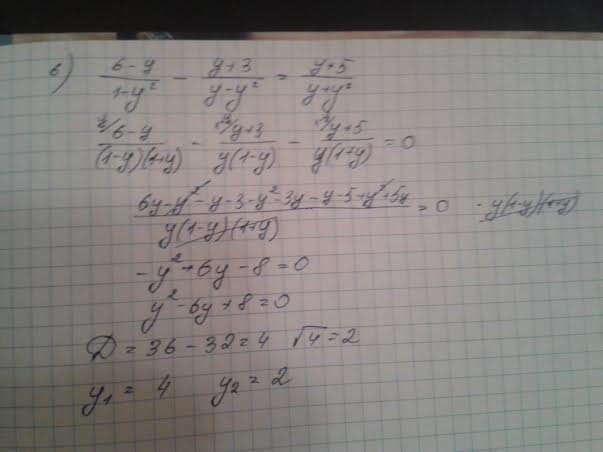 в) (6-y)/(1-y²) - (y+3)/(y-y²) = (y+5)/(y+y²)
(6-y)/((1-y)(1+y)) - (y+3)/(y(1-y)) - (y+5)/(y(1+y)) = 0
(6y-y²-y-3-y²-3y-y-5+y²+5y)/(y(1-y)(1+y)) = 0 · y(1-y)(1+y)
-y²+6y-8=0
y²-6y+8=0
D = 36-32=4 √4=2
y₁ = 4 y₂ = 2